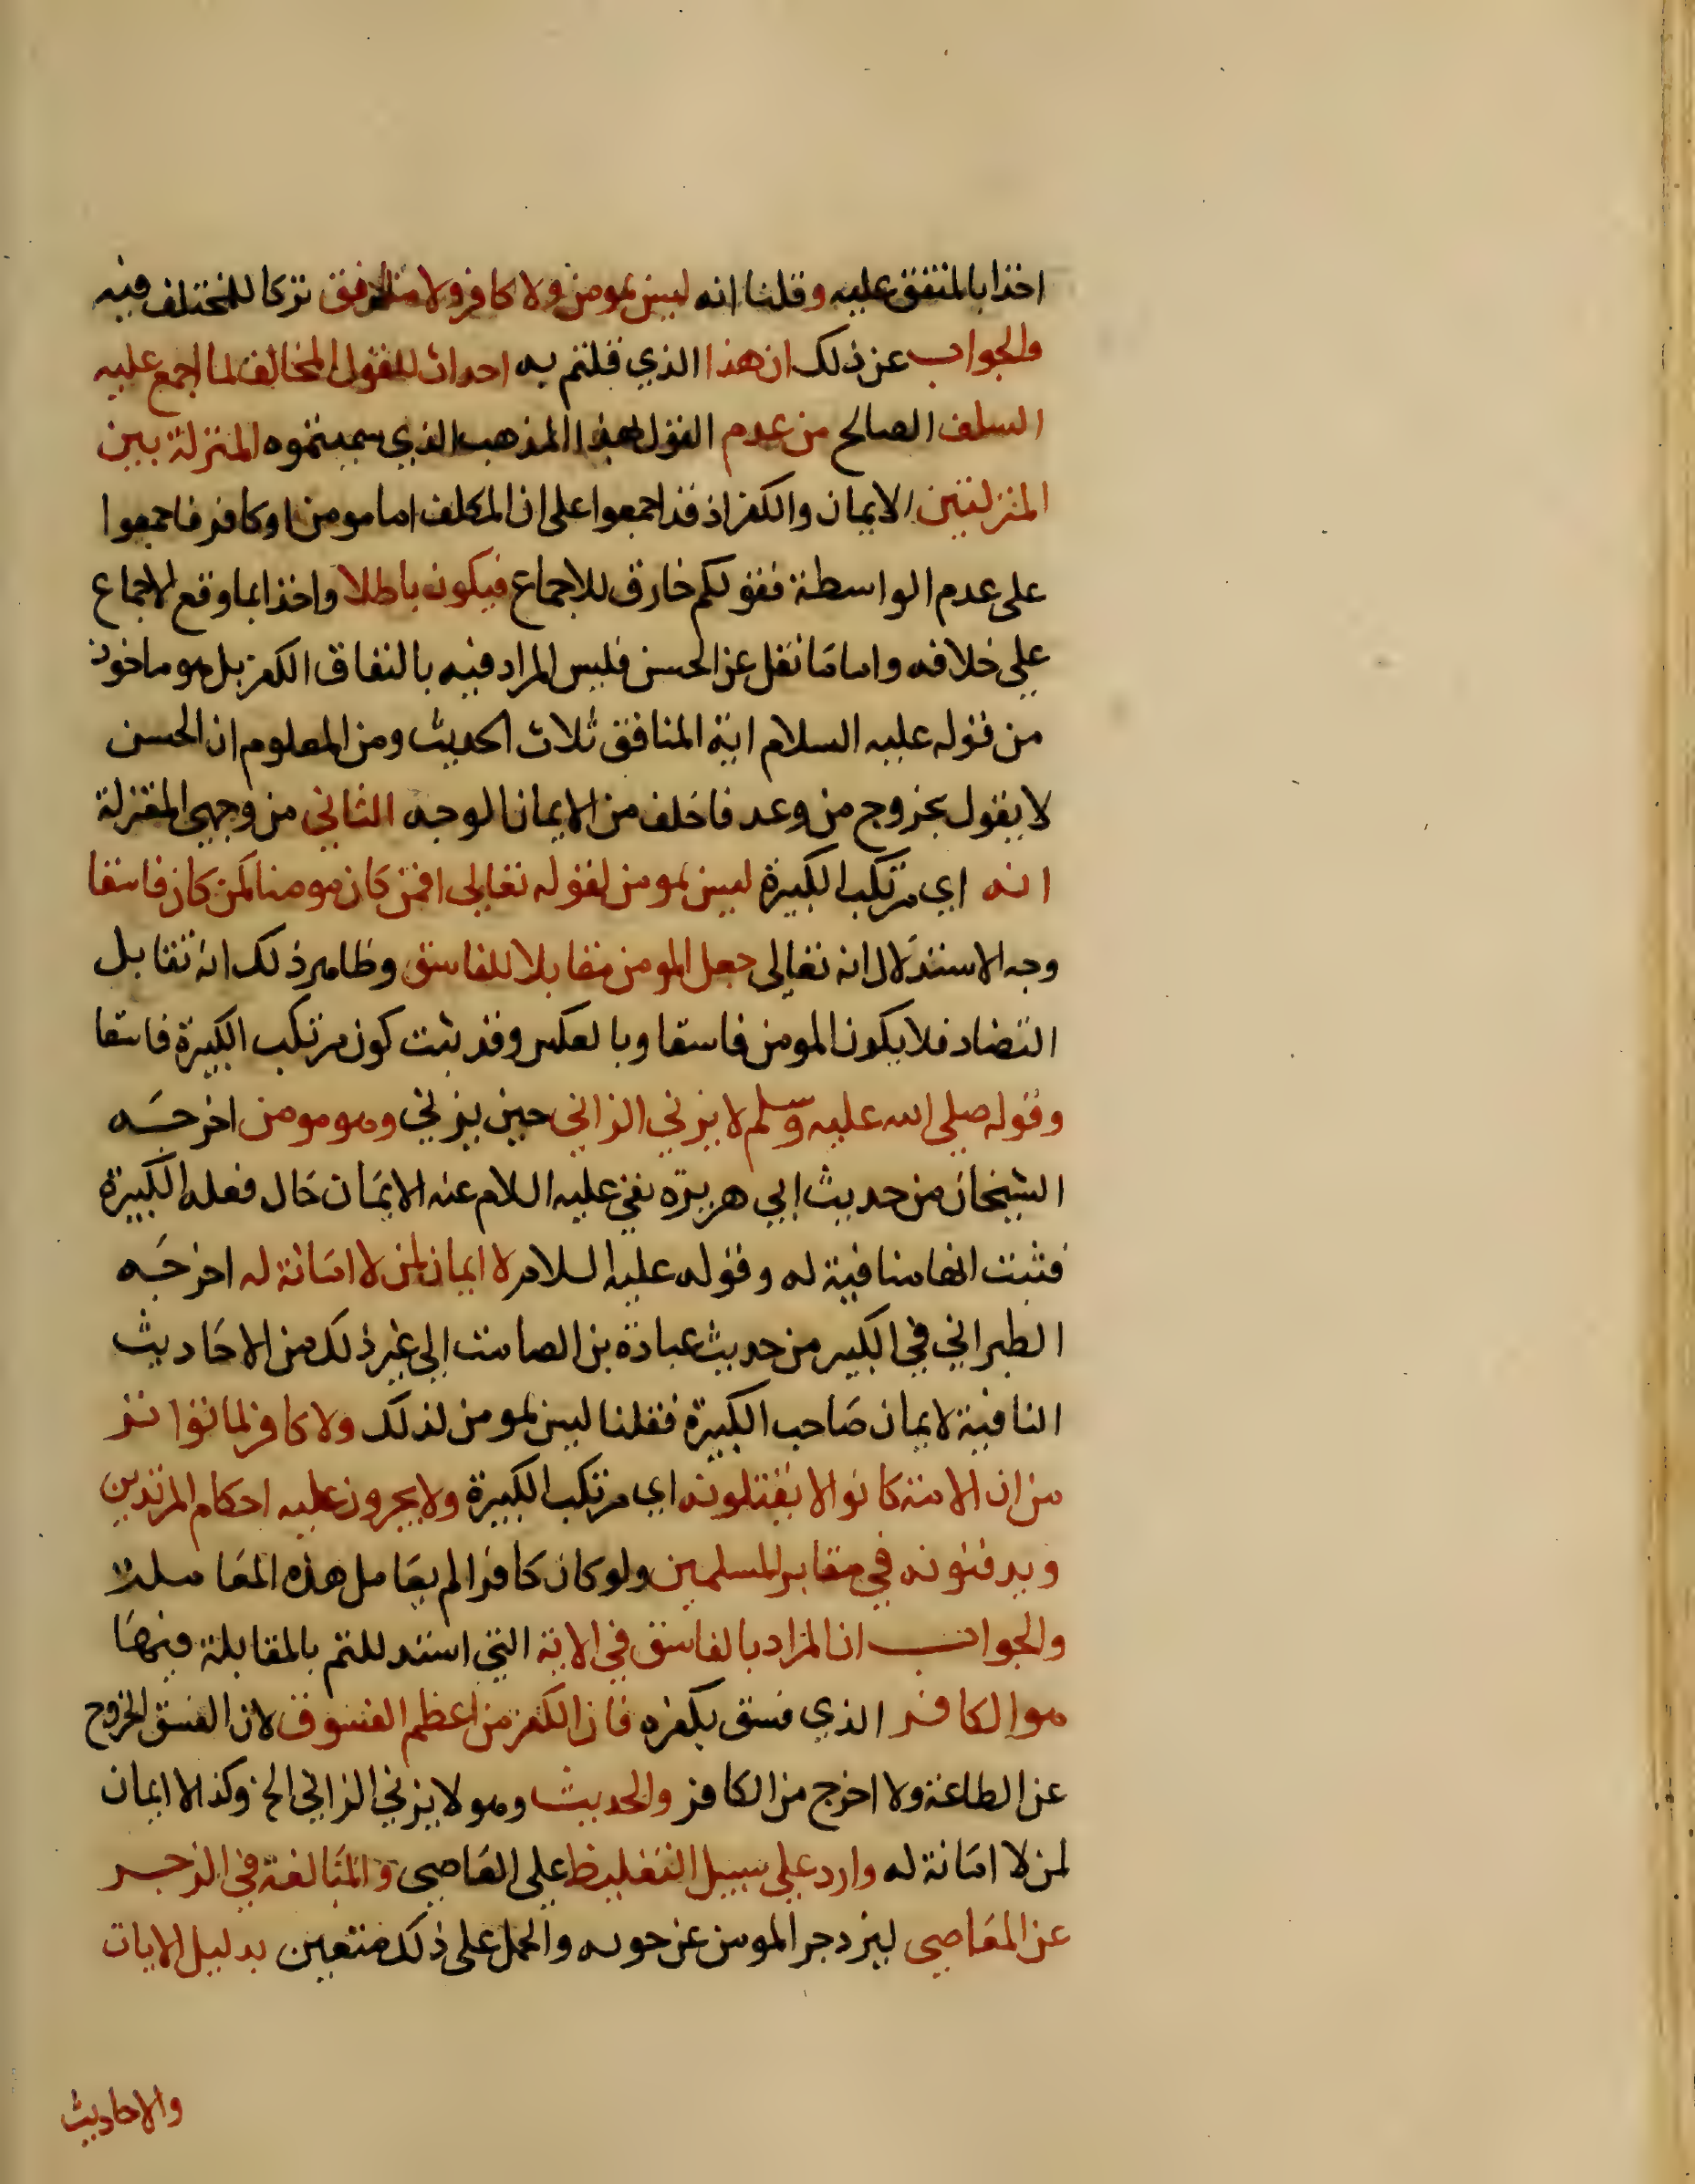 اخذا بالمتفق عليه وقلنا انه ليس بمومن ولا كافر ولا منافق تركا للمختلف فيه
والجواب عن ذلك ان هذا الذي قلتم به احداث للقول المخالف لما اجمع عليه
السلف الصالح من عدم القول بهذا المذهب الذي سميتموه المنزلة بين
المنزلتين الايمان والكفر اذ قد اجمعوا على ان المكلف اما مومن او كافر فاجمعوا
على عدم الواسطة فقولكم خارق للاجماع فيكون باطلا واخذا بما وقع الاجماع
على خلافه واما ما نقل عن الحسن فليس المراد فيه بالنفاق الكفر بل هو ماخوذ
من قوله عليه السلام اية المنافق ثلاث الحديث ومن المعلوم ان الحسن
لا يقول بخروج من وعد فاخلف من الايمان الوجه الثاني من وجهي المعتزلة
انه اي مرتكب الكبيرة ليس بمومن لقوله تعالى افمن كان مومنا كمن كان فاسقا
وجه الاستدلال انه تعالى جعل المومن مقابلا للفاسق وظاهر ذلك انه تقابل
التضاد فلا يكون المومن فاسقا وبالعكس وقد ثبت كون مرتكب الكبيرة فاسقا
وقوله صلى الله عليه وسلم لا يزني الزاني حين يزني وهو مومن اخرجه
الشيخان من حديث ابي هريرة نفى عليه السلام عنه الايمان حال فعله الكبيرة
فثبت انها منافية له وقوله عليه السلام لا ايمان لمن لا امانة له اخرجه
الطبراني في الكبير من حديث عبادة بن الصامت الى غير ذلك من الاحاديث
النافية لايمان صاحب الكبيرة فقلنا ليس بمومن لذلك ولا كافر لما تواتر
من ان الامة كانوا لا يقتلونه اي مرتكب الكبيرة ولا يجرون عليه احكام المرتدين
ويدفنونه في مقابر المسلمين ولو كان كافرا لم يعامل هذه المعاملة
والجواب ان المراد بالفاسق في الاية التي استدللتم بالمقابلة فيها
هو الكافر الذي فسق بكفره فان الكفر من اعظم الفسوق لان الفسق الخروج
عن الطاعة ولا اخرج من الكافر والحديث وهو لا يزني الزاني الخ وكذا لا ايمان
لمن لا امانة له وارد على سبيل التغليظ على العاصي والمبالغة في الزجر
عن المعاصي لينزدجر المومن عن والحمل على ذلك متعين بدليل الايات
والاحاديث